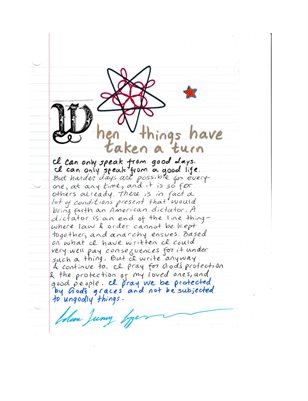 When things have
taken a turn
I can only speak from good days.
I can only speak from a good life.
But harder days are possible for every-
one, at any time, and it is so for
others already. There is in fact a
lot of conditions present that would
bring forth an American dictator. A
dictator is an end of the line thing-
where law & order cannot be kept
together, and anarchy ensues. Based
on what I have written I could
very well pay consequences for it under
such a thing. But I write anyway
& continue to. I pray for God's protection
& the protection of my loved ones, and
good people. I pray we be protected
by God's graces and not be subjected
to ungodly things-